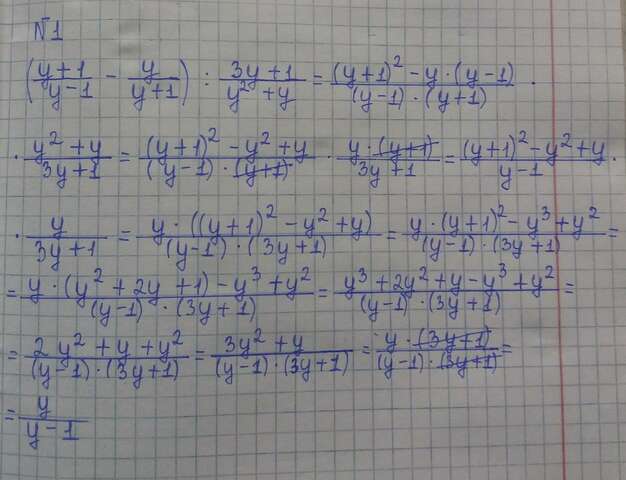 №1
((y+1)/(y-1) - y/(y+1)) : (3y+1)/(y²+y) = ((y+1)² - y·(y-1))/((y-1)·(y+1)) ·
· (y²+y)/(3y+1) = ((y+1)² - y²+y)/((y-1)·(y+1)) · (y·(y+1))/(3y+1) = ((y+1)² - y²+y)/(y-1) ·
· y/(3y+1) = (y·((y+1)² - y²+y))/((y-1)·(3y+1)) = (y·(y+1)² - y³+y²)/((y-1)·(3y+1)) =
= (y·(y²+2y+1) - y³+y²)/((y-1)·(3y+1)) = (y³+2y²+y-y³+y²)/((y-1)·(3y+1)) =
= (2y²+y+y²)/((y-1)·(3y+1)) = (3y²+y)/((y-1)·(3y+1)) = (y·(3y+1))/((y-1)·(3y+1)) =
= y/(y-1)